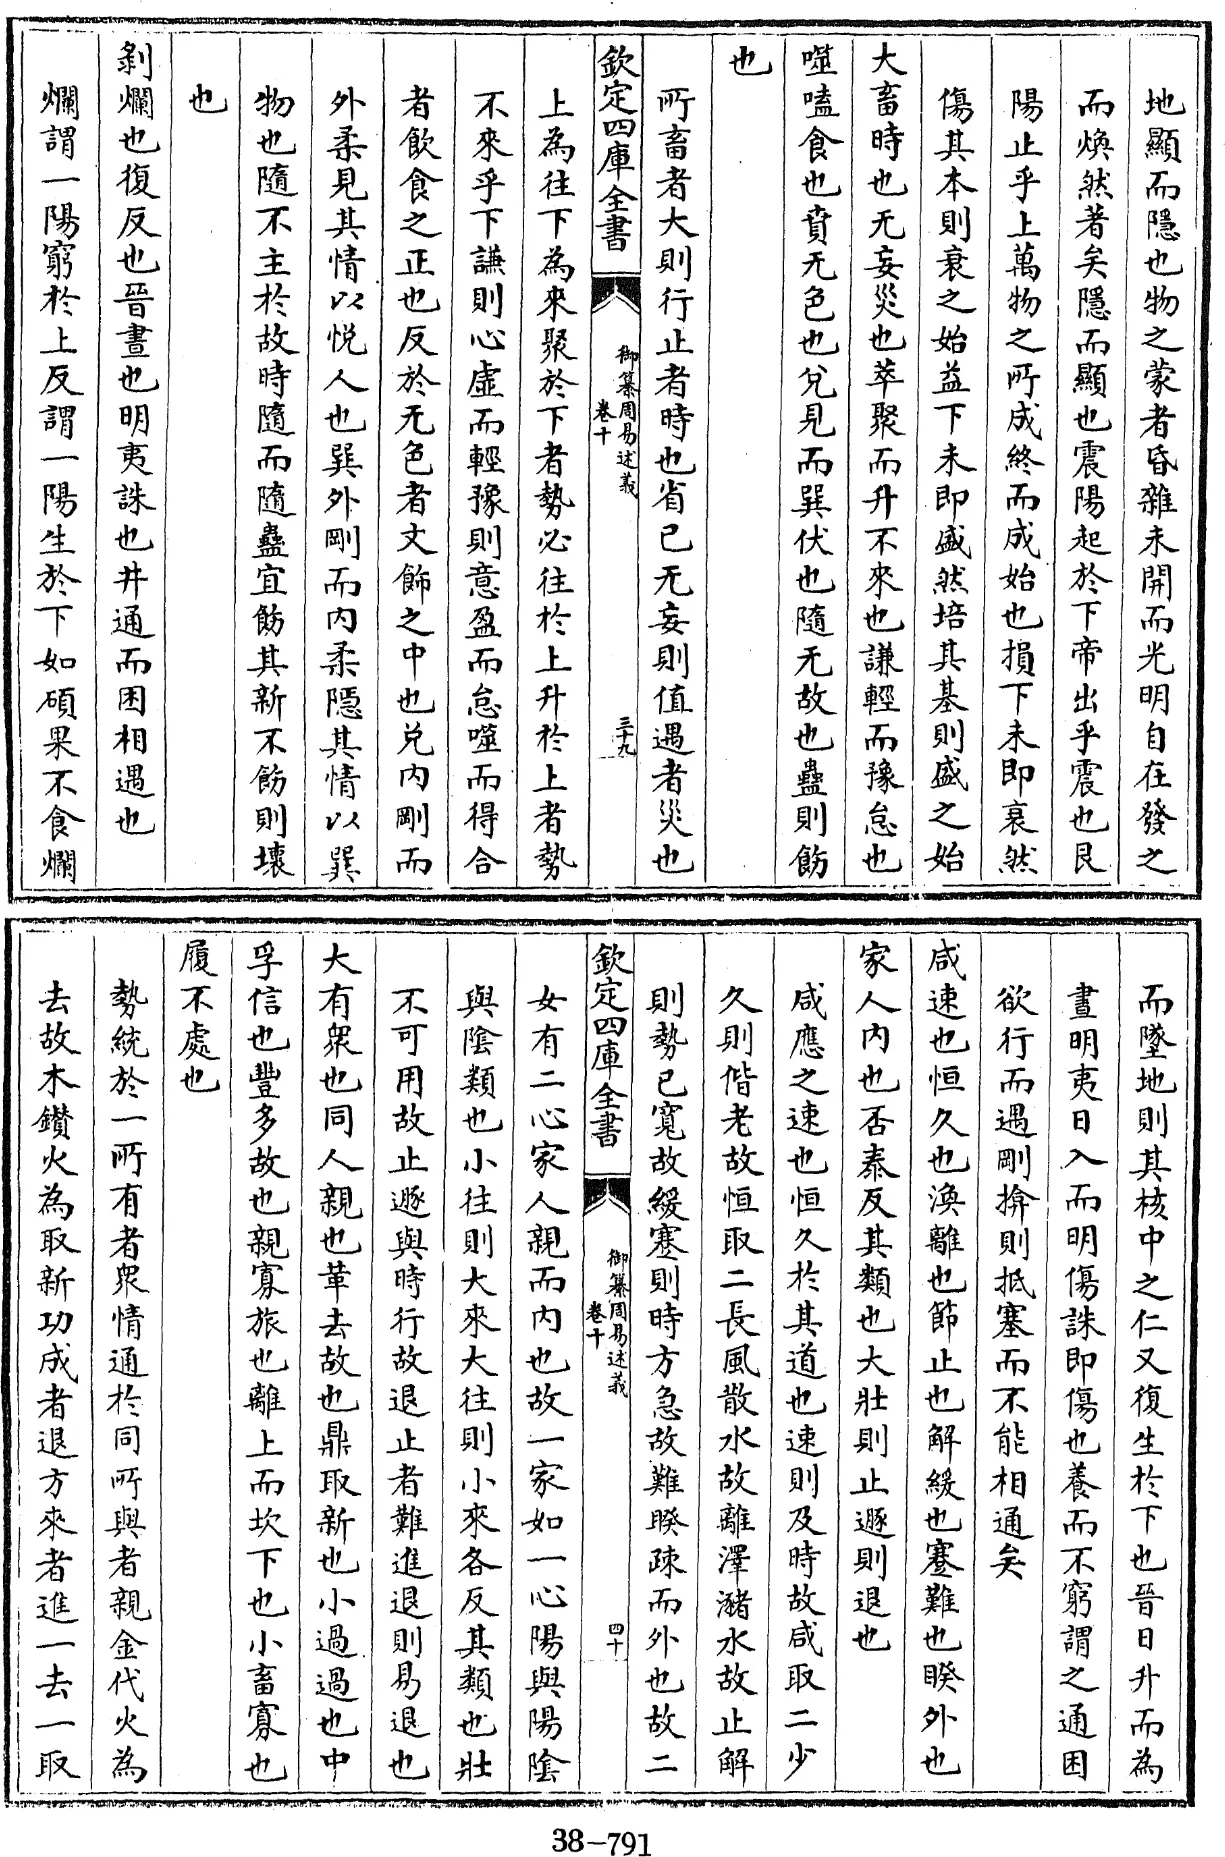 地顯而隱也物之蒙者昏雜未開而光明自在發之
而煥然著矣隱而顯也震陽起於下帝出乎震也艮
陽止乎上萬物之所成終而成始也損下未即衰然
傷其本則衰之始益下未即盛然培其基則盛之始
大畜時也无妄災也萃聚而升不來也謙輕而豫怠也
噬嗑食也賁无色也兌見而巽伏也隨无故也蠱則飭
也
所畜者大則行止者時也省已无妄則值遇者災也
欽定四庫全書
御纂周易述義
卷十
三十九
上為往下為來聚於下者勢必往於上升於上者勢
不來乎下謙則心虛而輕豫則意盈而怠噬而得合
者飲食之正也反於无色者文飾之中也兌內剛而
外柔見其情以悅人也巽外剛而內柔隱其情以巽
物也隨不主於故時隨而隨蠱宜飭其新不飭則壞
也
剝爛也復反也晉晝也明夷誅也井通而困相遇也
爛謂一陽窮於上反謂一陽生於下如碩果不食爛
而墜地則其核中之仁又復生於下也晉日升而為
晝明夷日入而明傷誅即傷也養而不窮謂之通困
欲行而遇剛揜則抵塞而不能相通矣
咸速也恒久也渙離也節止也解緩也蹇難也睽外也
家人內也否泰反其類也大壯則止遯則退也
咸應之速也恒久於其道也速則及時故咸取二少
久則偕老故恒取二長風散水故離澤瀦水故止解
則勢已寬故緩蹇則時方急故難睽疎而外也故二
欽定四庫全書
御纂周易述義
卷十
四十
女有二心家人親而內也故一家如一心陽與陽陰
與陰類也小往則大來大往則小來各反其類也壯
不可用故止遯與時行故退止者難進退則易退也
大有眾也同人親也革去故也鼎取新也小過過也中
孚信也豐多故也親寡旅也離上而坎下也小畜寡也
履不處也
勢統於一所有者眾情通於同所與者親金代火為
去故木鑚火為取新功成者退方來者進一去一取
38-791